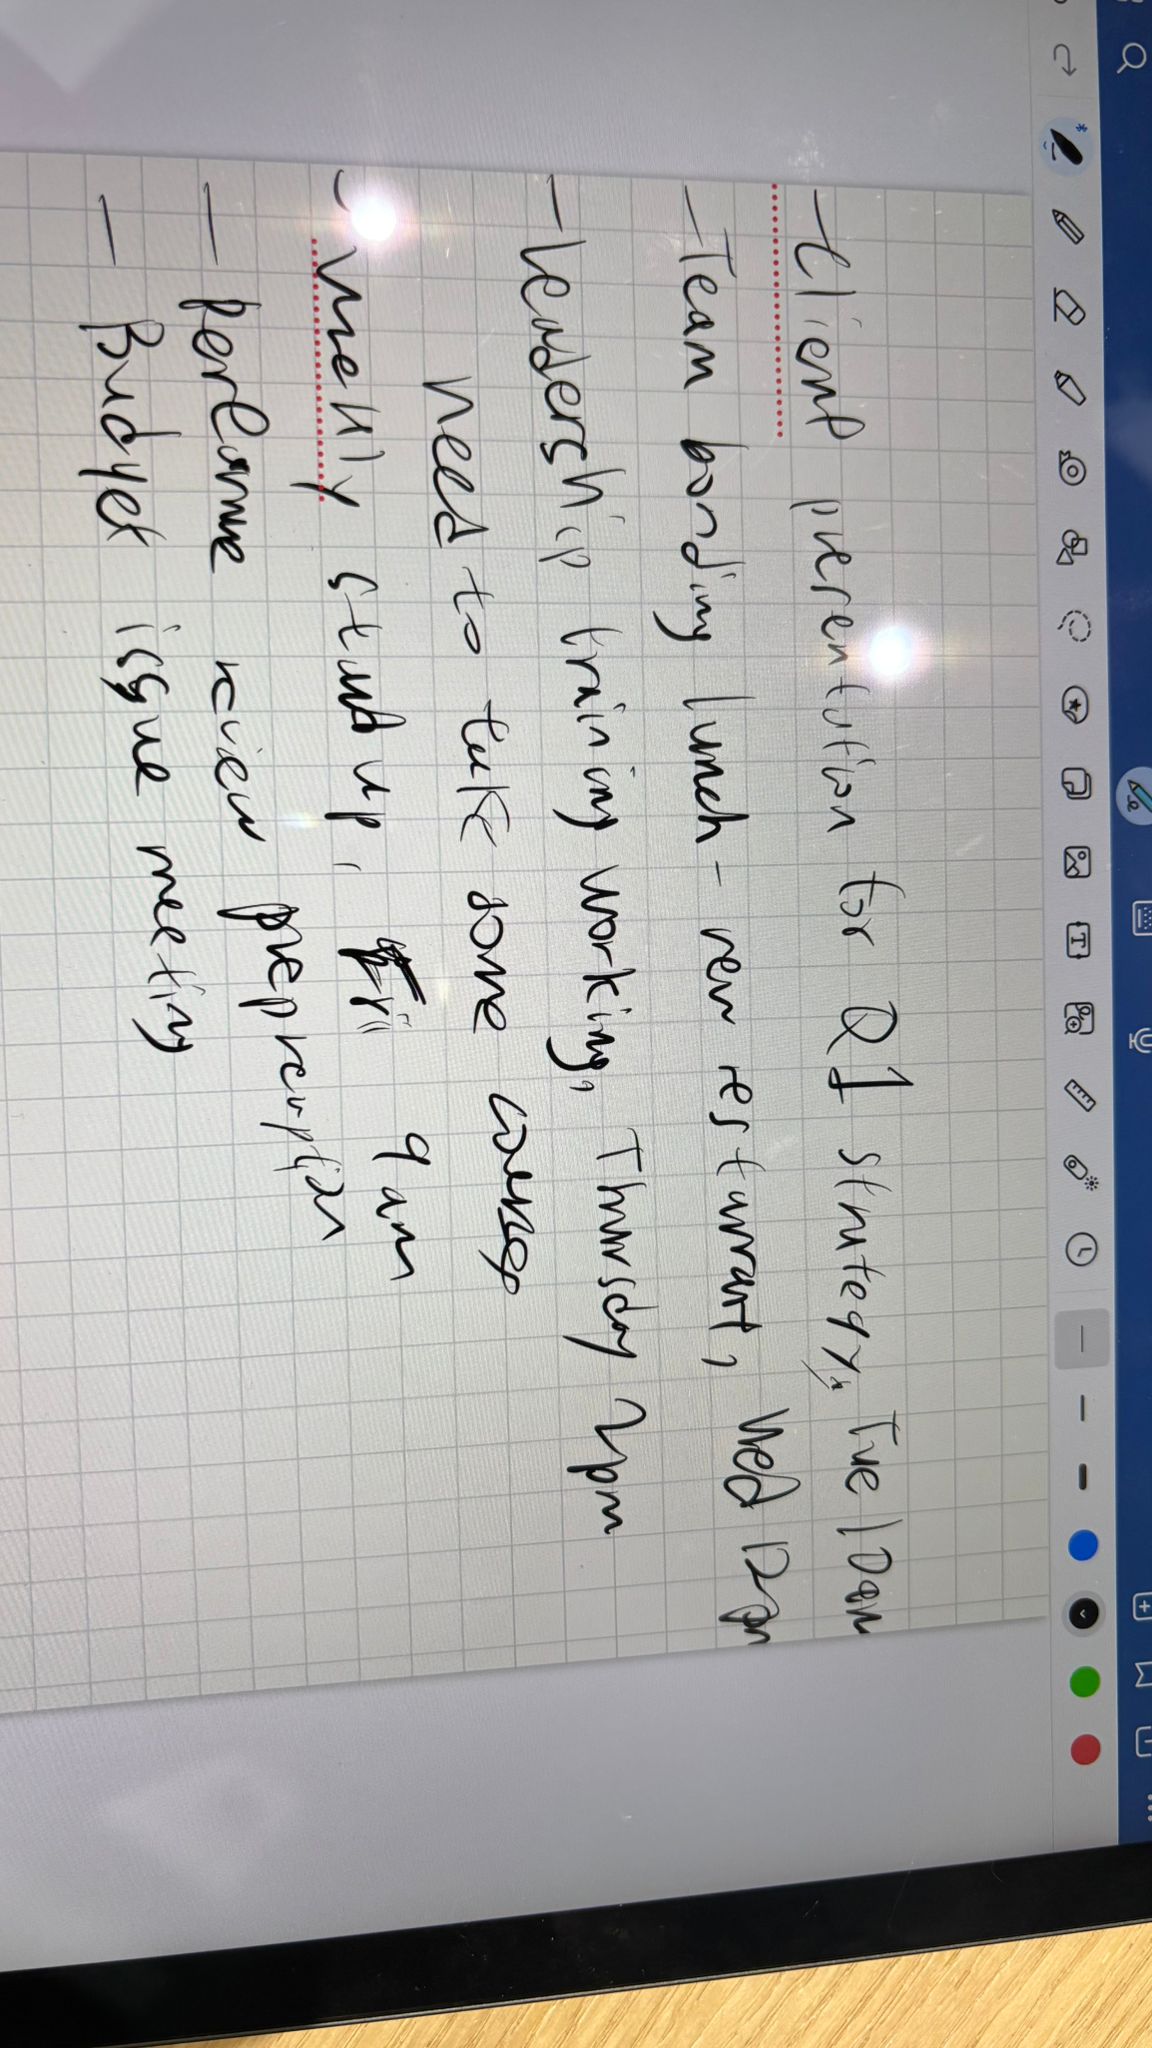 - Client presentation for Q1 strategy, Tue 10am
- Team bonding lunch - new restaurant, Wed 12pm
- Leadership training working, Thursday 2pm
need to take some
- Weekly stand up, Fri 9am
- Performance review preparation
- Budget issue meeting